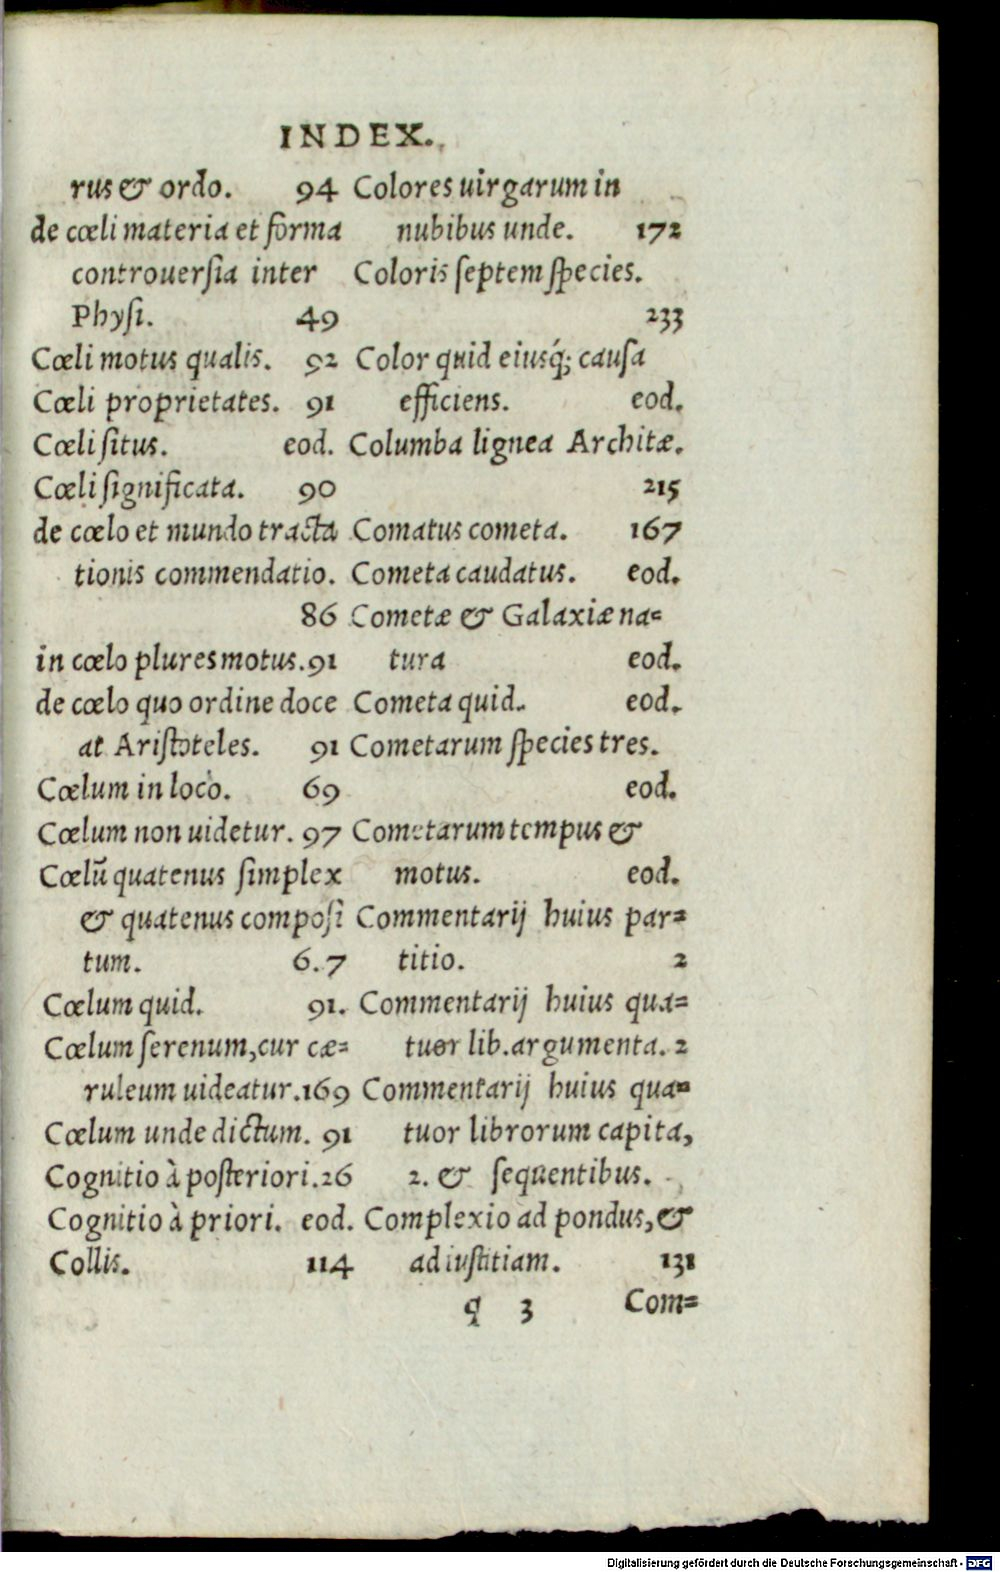 INDEX.
rus & ordo. 94
de cœli materia et forma
controuerſia inter
Phyſi. 49
Cœli motus qualis. 92
Cœli proprietates. 91
Cœli ſitus. eod.
Cœli ſignificata. 90
de cœlo et mundo tracta
tionis commendatio.
86
in cœlo plures motus. 91
de cœlo quo ordine doce
at Ariſtoteles. 91
Cœlum in loco. 69
Cœlum non uidetur. 97
Cœlũ quatenus ſimplex
& quatenus compoſi
tum. 6.7
Cœlum quid. 91.
Cœlum ſerenum, cur cæ=
ruleum uideatur. 169
Cœlum unde dictum. 91
Cognitio à poſteriori. 26
Cognitio à priori. eod.
Collis. 114
Colores uirgarum in
nubibus unde. 172
Coloris ſeptem ſpecies.
233
Color quid eiusq́; cauſa
efficiens. eod.
Columba lignea Architæ.
215
Comatus cometa. 167
Cometa caudatus. eod.
Cometæ & Galaxiæ na=
tura eod.
Cometa quid. eod.
Cometarum ſpecies tres.
eod.
Cometarum tempus &
motus. eod.
Commentarij huius par=
titio. 2
Commentarij huius qua=
tuor lib. argumenta. 2
Commentarij huius qua=
tuor librorum capita,
2. & ſequentibus.
Complexio ad pondus, &
ad iuſtitiam. 131
q 3 Com=
Digitalisierung gefördert durch die Deutsche Forschungsgemeinschaft - DFG